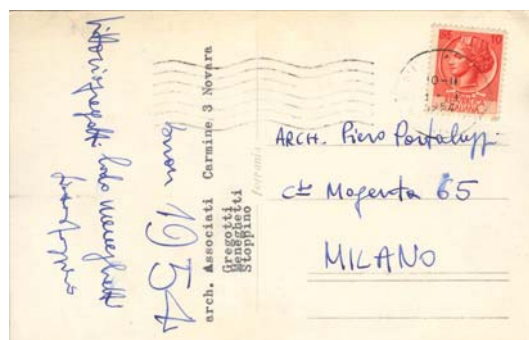 Vittorio Gregotti Lodo Meneghetti
buon 1954
arch. Associati Carmine, 3 Novara
Gregotti
Meneghetti
Stoppino
Ferrania
10
ARCH. Piero Portaluppi
Cso Magenta 65
MILANO